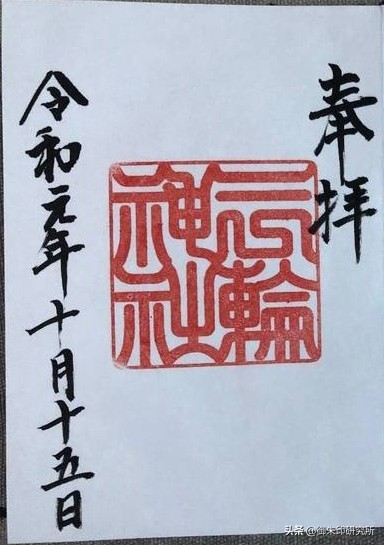 奉拝
三輪
神社
令和元年十月十五日
头条 @御朱印研究所